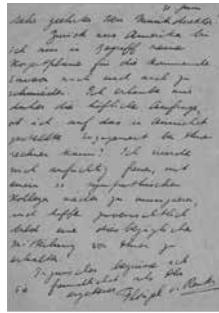 11. Juni
Sehr geehrter Herr Musikdirektor
Zurück aus Amerika bin
ich nun im Begriff meine
für die kommende
Saison nach und nach zu
schmieden. Ich erlaube mir
daher die höfliche Anfrage,
ob ich auf das in Aussicht
gestellte Engagement bei Ihnen
rechnen kann? Ich würde
mich aufrichtig freuen, mit
einem so sympathischen
Kollegen wieder zu musizieren,
und hoffe zuversichtlich
bald eine diesbezügliche
Mitteilung von Ihnen zu
erhalten
Inzwischen begrüsse ich
freundlichst als Ihr
ergebener